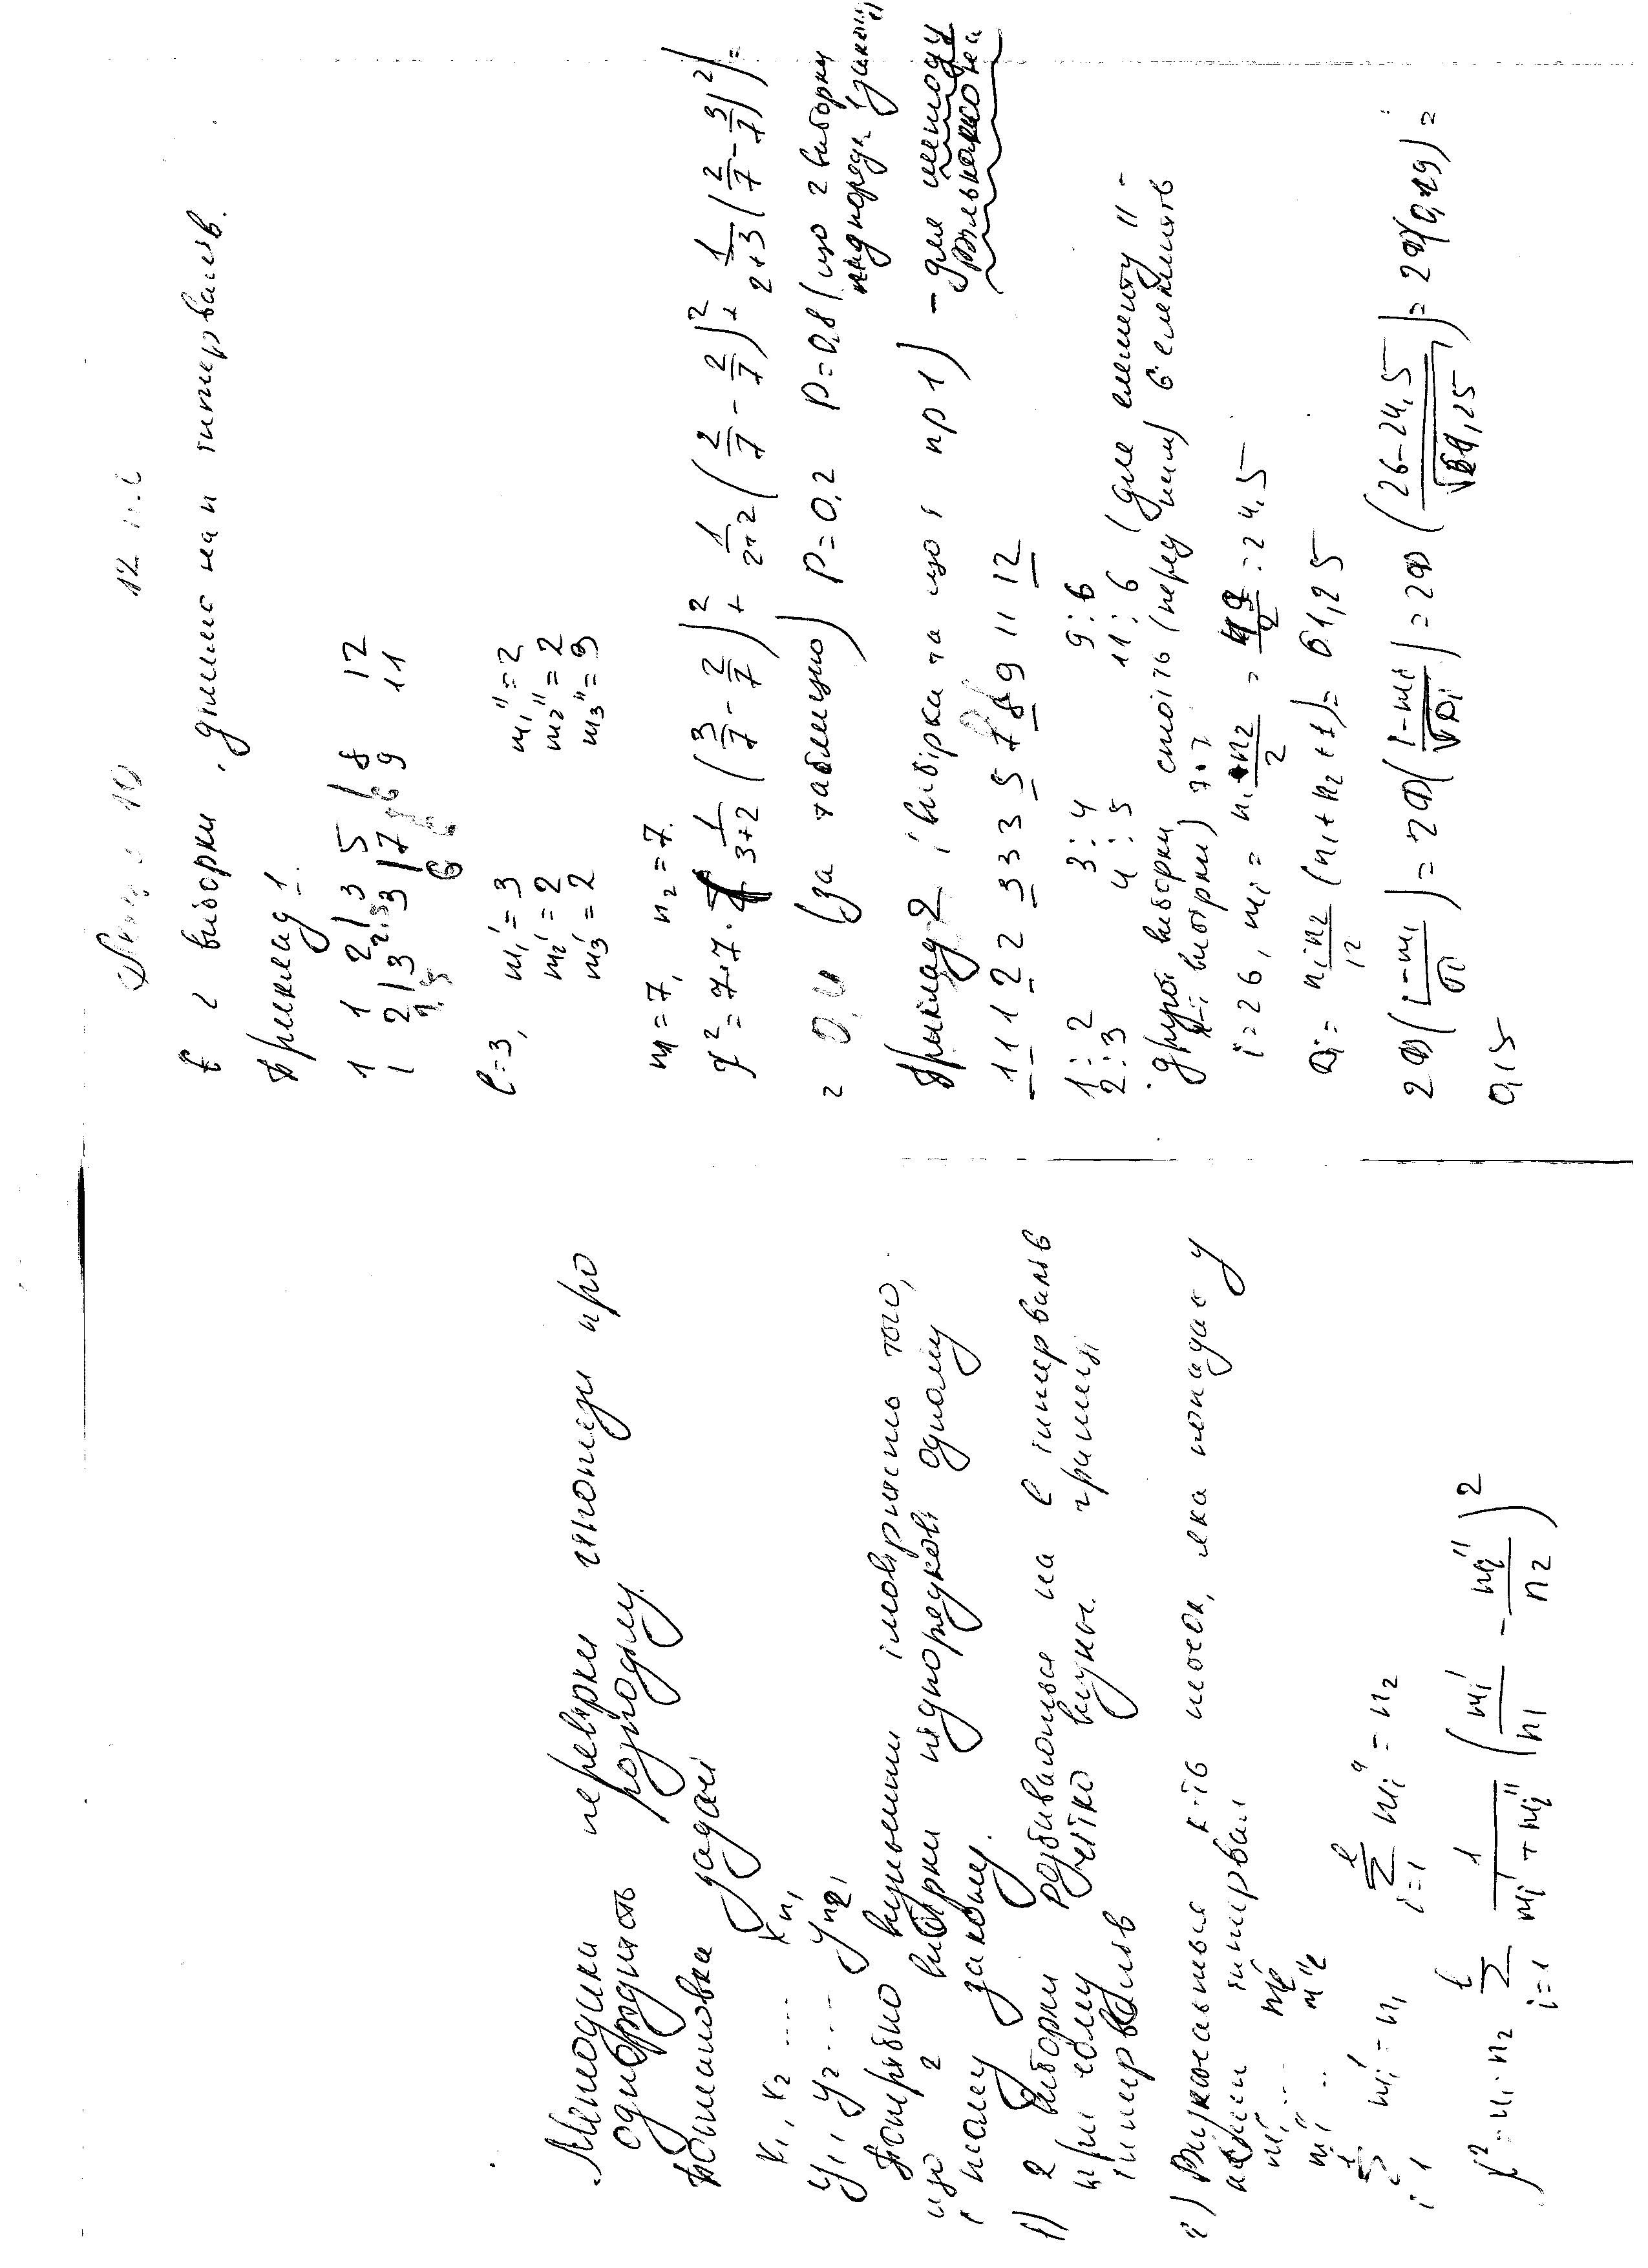 Методика перевірки гіпотези про
однорідність розподілу.
Постановка задачі
x₁, x₂ .... xn₁
y₁, y₂ .... yn₂,
Потрібно визначити імовірність того,
що 2 вибірки підпорядкові одному
і тому закону.
1) 2 виборки розбиваються на l інтервалів
при чому чітко визнач. границя
інтервалів
2) Визначається к-ть точок, яка попадає у
інтервал
m₁' .... mₗ'
m₁'' .. mₗ''
∑ᵢ₌₁ˡ mᵢ' = n₁ ∑ᵢ₌₁ˡ mᵢ'' = n₂
χ² = n₁·n₂ ∑ᵢ₌₁ˡ 1/(mᵢ' + mᵢ'') (mᵢ'/n₁ - mᵢ''/n₂)²
Є 2 виборки, ділимо на n інтервалів.
Приклад 1.
1 1 1 2 | 3 5 | 8 12
l=3, m₁'=3 m₁''=2
m₂'=2 m₂''=2
m₃'=2 m₃''=3
n₁=7, n₂=7.
χ² = 7·7· 1/(3+2) (3/7 - 2/7)² + 1/(2+2) (2/7 - 2/7)² + 1/(2+3) (2/7 - 3/7)²) =
= 0,4 (за таблицею) P=0,2 P=0,8 (що 2 виборки
підпоряд. 1 закону)
Приклад 2 (вибірка та що і пр 1) – для методу
Вількоксона
1 1 1 2 2 3 3 3 5 7 8 9 11 12
1:2 3:4 9:6
2:3 4:5 11:6 (для елементу 11 -
другої виборки стоїть (перед ним) 6 елементів
виборки)
i=26, mᵢ = n₁·n₂/2 = 49/2 = 24,5
Dᵢ = n₁n₂/12 (n₁+n₂+1) = 61,25
2Ф(i-mᵢ/√D) = 2Ф(i-mᵢ/√Dᵢ) = 2Ф(26-24,5/√61,25) = 2Ф(0,19) =
0,15